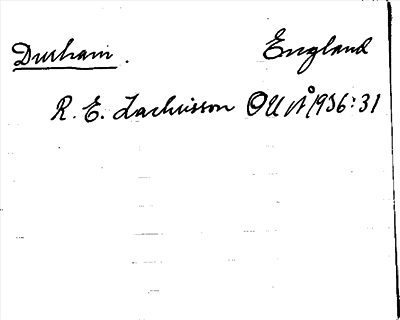 Durham. England
R. E. Zachrisson OUÅ 1936:31